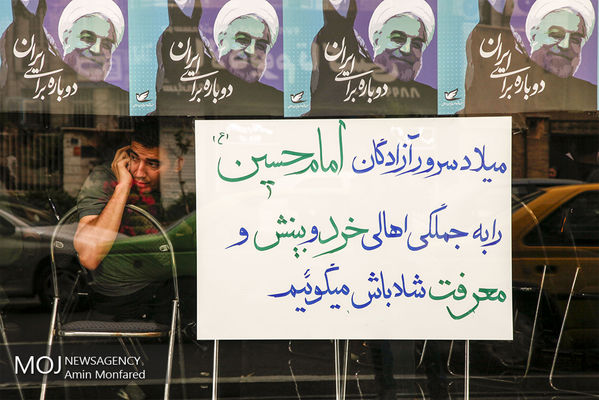 دوباره برای ایران
دوباره برای ایران
دوباره برای ایران
دوباره برای ایران
میلاد سرور آزادگان امام حسین (ع)
را به جملگی اهالی خرد و بینش و
معرفت شادباش میگوئیم
MOJ NEWSAGENCY
Amin Monfared